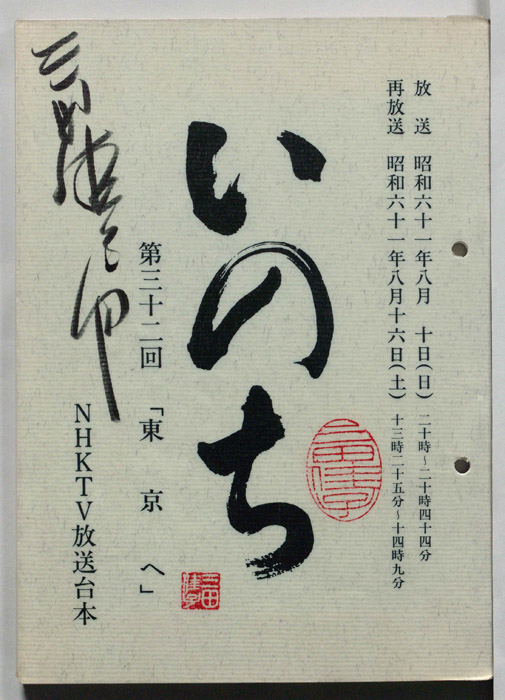 放　送　昭和六十一年八月　十日(日)　二十時～二十時四十四分
再放送　昭和六十一年八月十六日(土)　十三時二十五分～十四時九分
いのち
三田佳子
第三十二回　「東　京　へ」
NHKTV放送台本